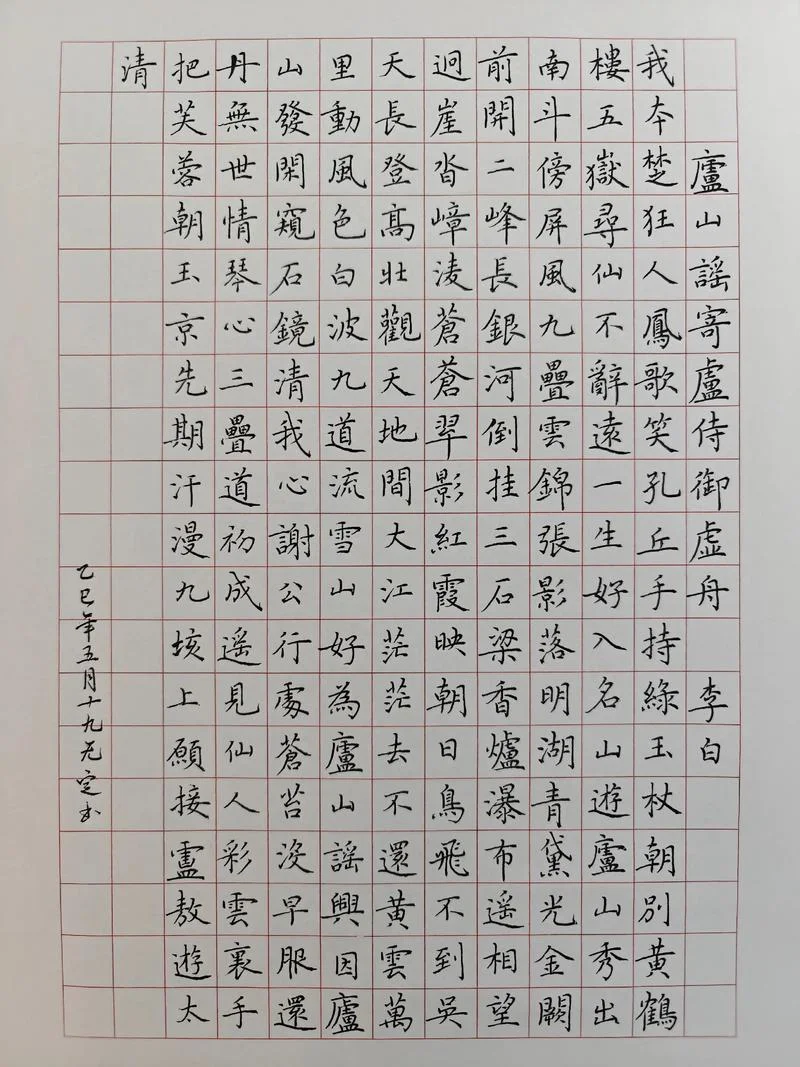 廬山謠寄盧侍御虛舟 李白
我本楚狂人鳳歌笑孔丘手持綠玉杖朝別黃鶴
樓五嶽尋仙不辭遠一生好入名山遊廬山秀出
南斗傍屏風九疊雲錦張影落明湖青黛光金闕
前開二峰長銀河倒挂三石梁香爐瀑布遥相望
迥崖沓嶂淩蒼蒼翠影紅霞映朝日鳥飛不到吳
天長登高壯觀天地間大江茫茫去不還黃雲萬
里動風色白波九道流雪山好為廬山謠興因廬
山發閑窺石鏡清我心謝公行處蒼苔沒早服還
丹無世情琴心三疊道初成遥見仙人彩雲裏手
把芙蓉朝玉京先期汗漫九垓上願接盧敖遊太
清
乙巳年五月十九无定书